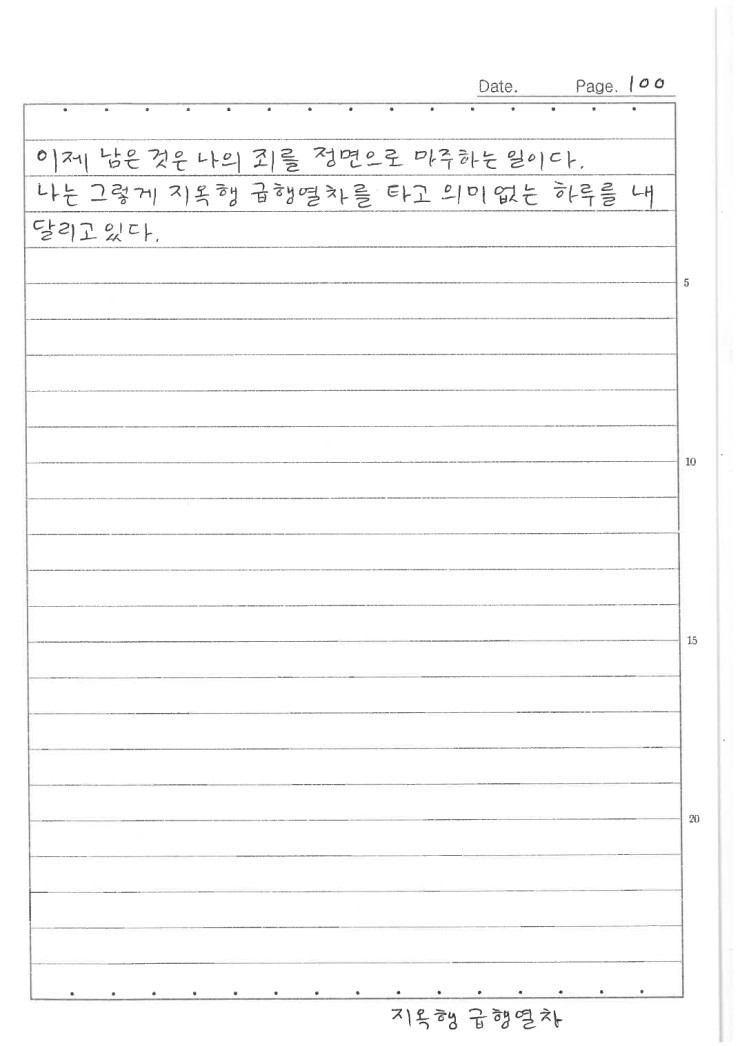 Date. Page. 100
이제 남은 것은 나의 죄를 정면으로 마주하는 일이다.
나는 그렇게 지옥행 급행열차를 타고 의미없는 하루를 내
달리고 있다.
5
10
15
20
지옥행 급행열차